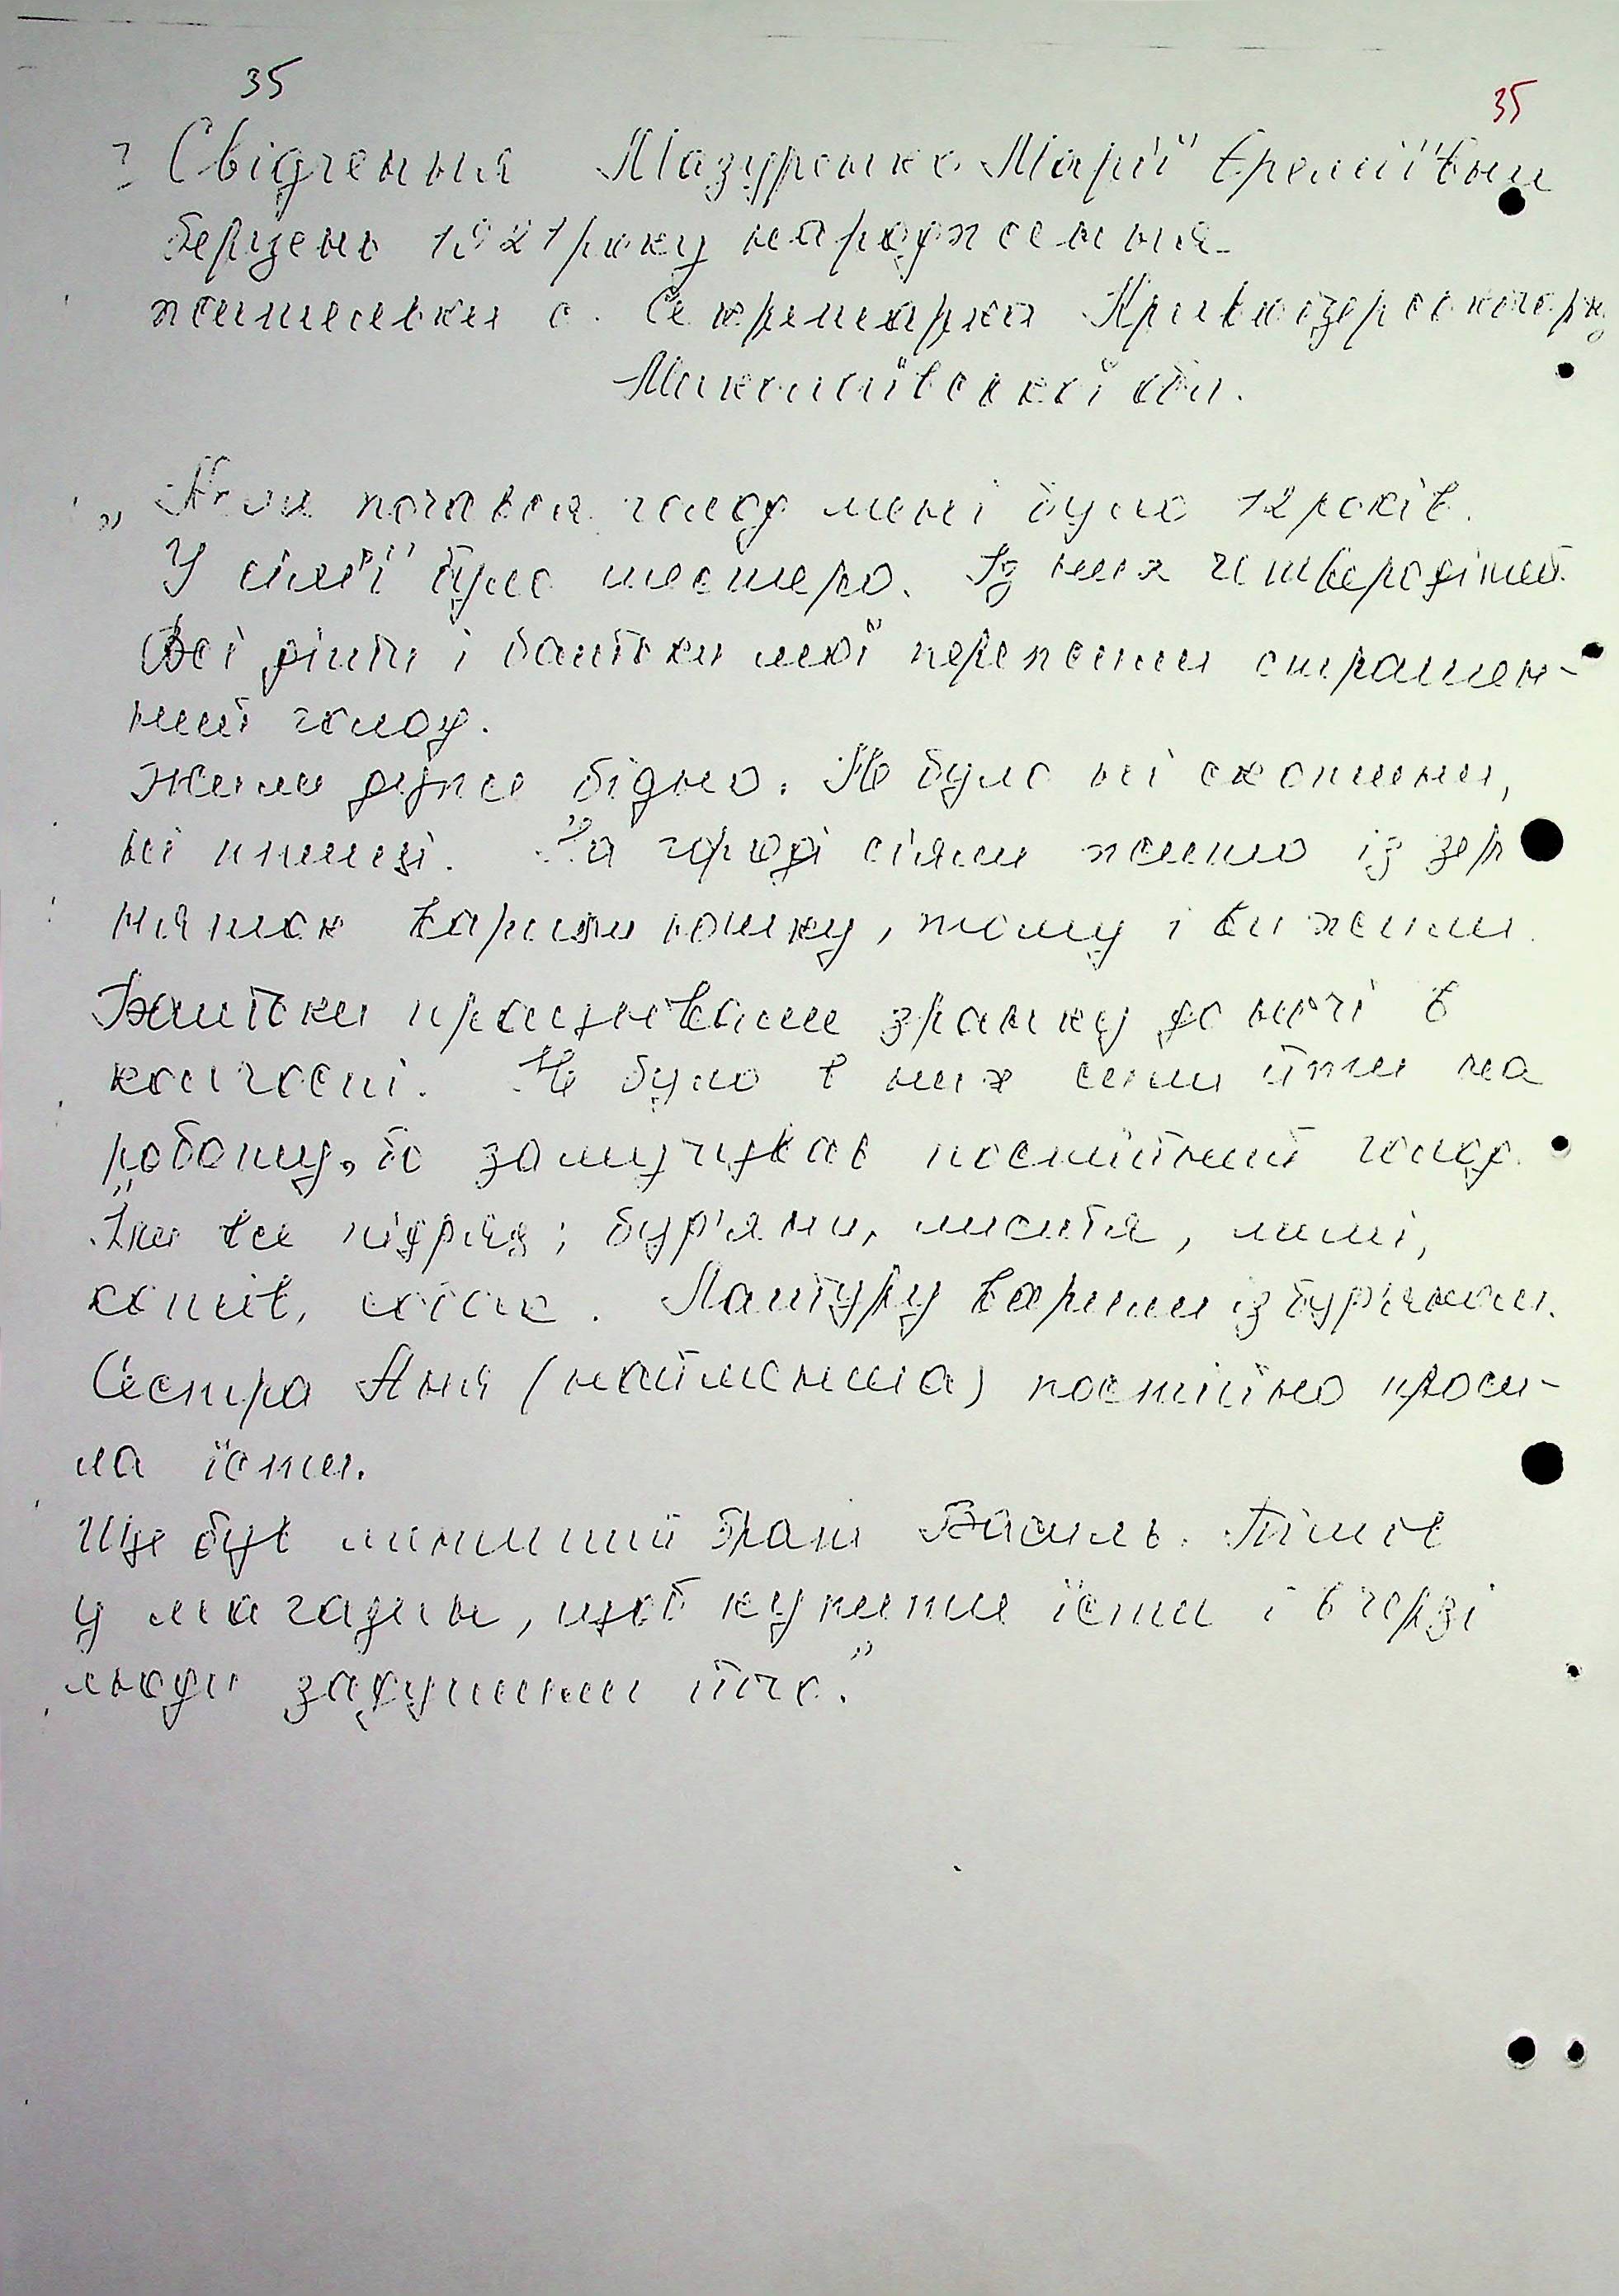 35
35
Свідчення Мазуренко Марії Єреміївни
березень 1921 року народження
жительки с. Секретарка Кривоозерського р-ну
Миколаївської обл.
„Коли почався голод мені було 12 років.
У сім'ї було шестеро. Із них четверо дітей.
Всі діти і батьки мої пережили страшен-
ний голод.
Жили дуже бідно. Не було ні скотини,
ні птиці. На городі сіяли жито із зер
няток варили юшку, тому і вижили.
Батьки працювали зранку до ночі в
колгоспі. Не було в них сили йти на
роботу, бо замучував постійний голод.
Їли все підряд; бур'яни, листя, миші,
котів, собак. Мантуру варили із бур'янами.
Сестра Аня (найменша) постійно проси-
ла їсти.
Ще був менший брат Василь. Пішов
у магазин, щоб купити їсти і в черзі
люди задушили його."